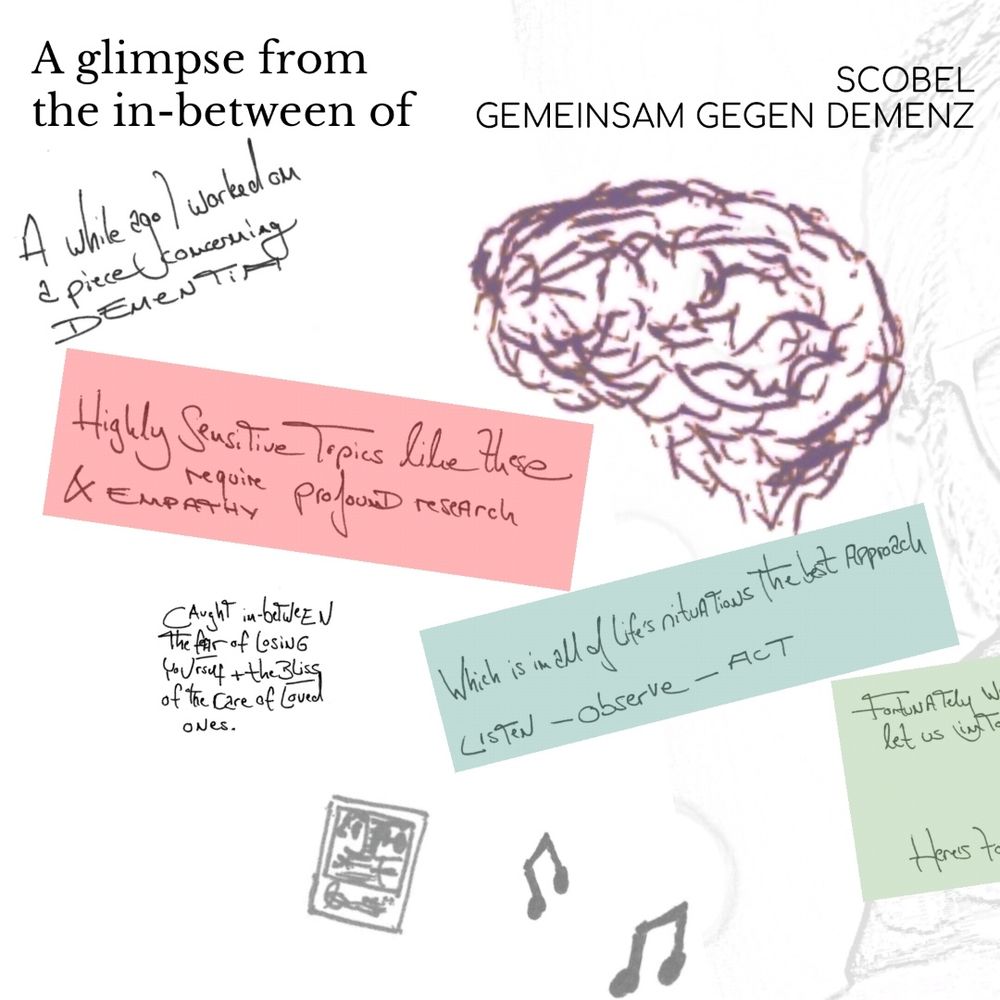 A glimpse from
the in-between of
SCOBEL
GEMEINSAM GEGEN DEMENZ
A while ago I worked on
a piece concerning
DEMENTIA
Highly Sensitive Topics like these
require profound research
& EMPATHY
Caught in-between
the fear of losing
yourself + the Bliss
of the care of loved
ones.
Which is in all of life's situations the best Approach
LISTEN – observe – ACT
Fortunately W
let us into
Here's to